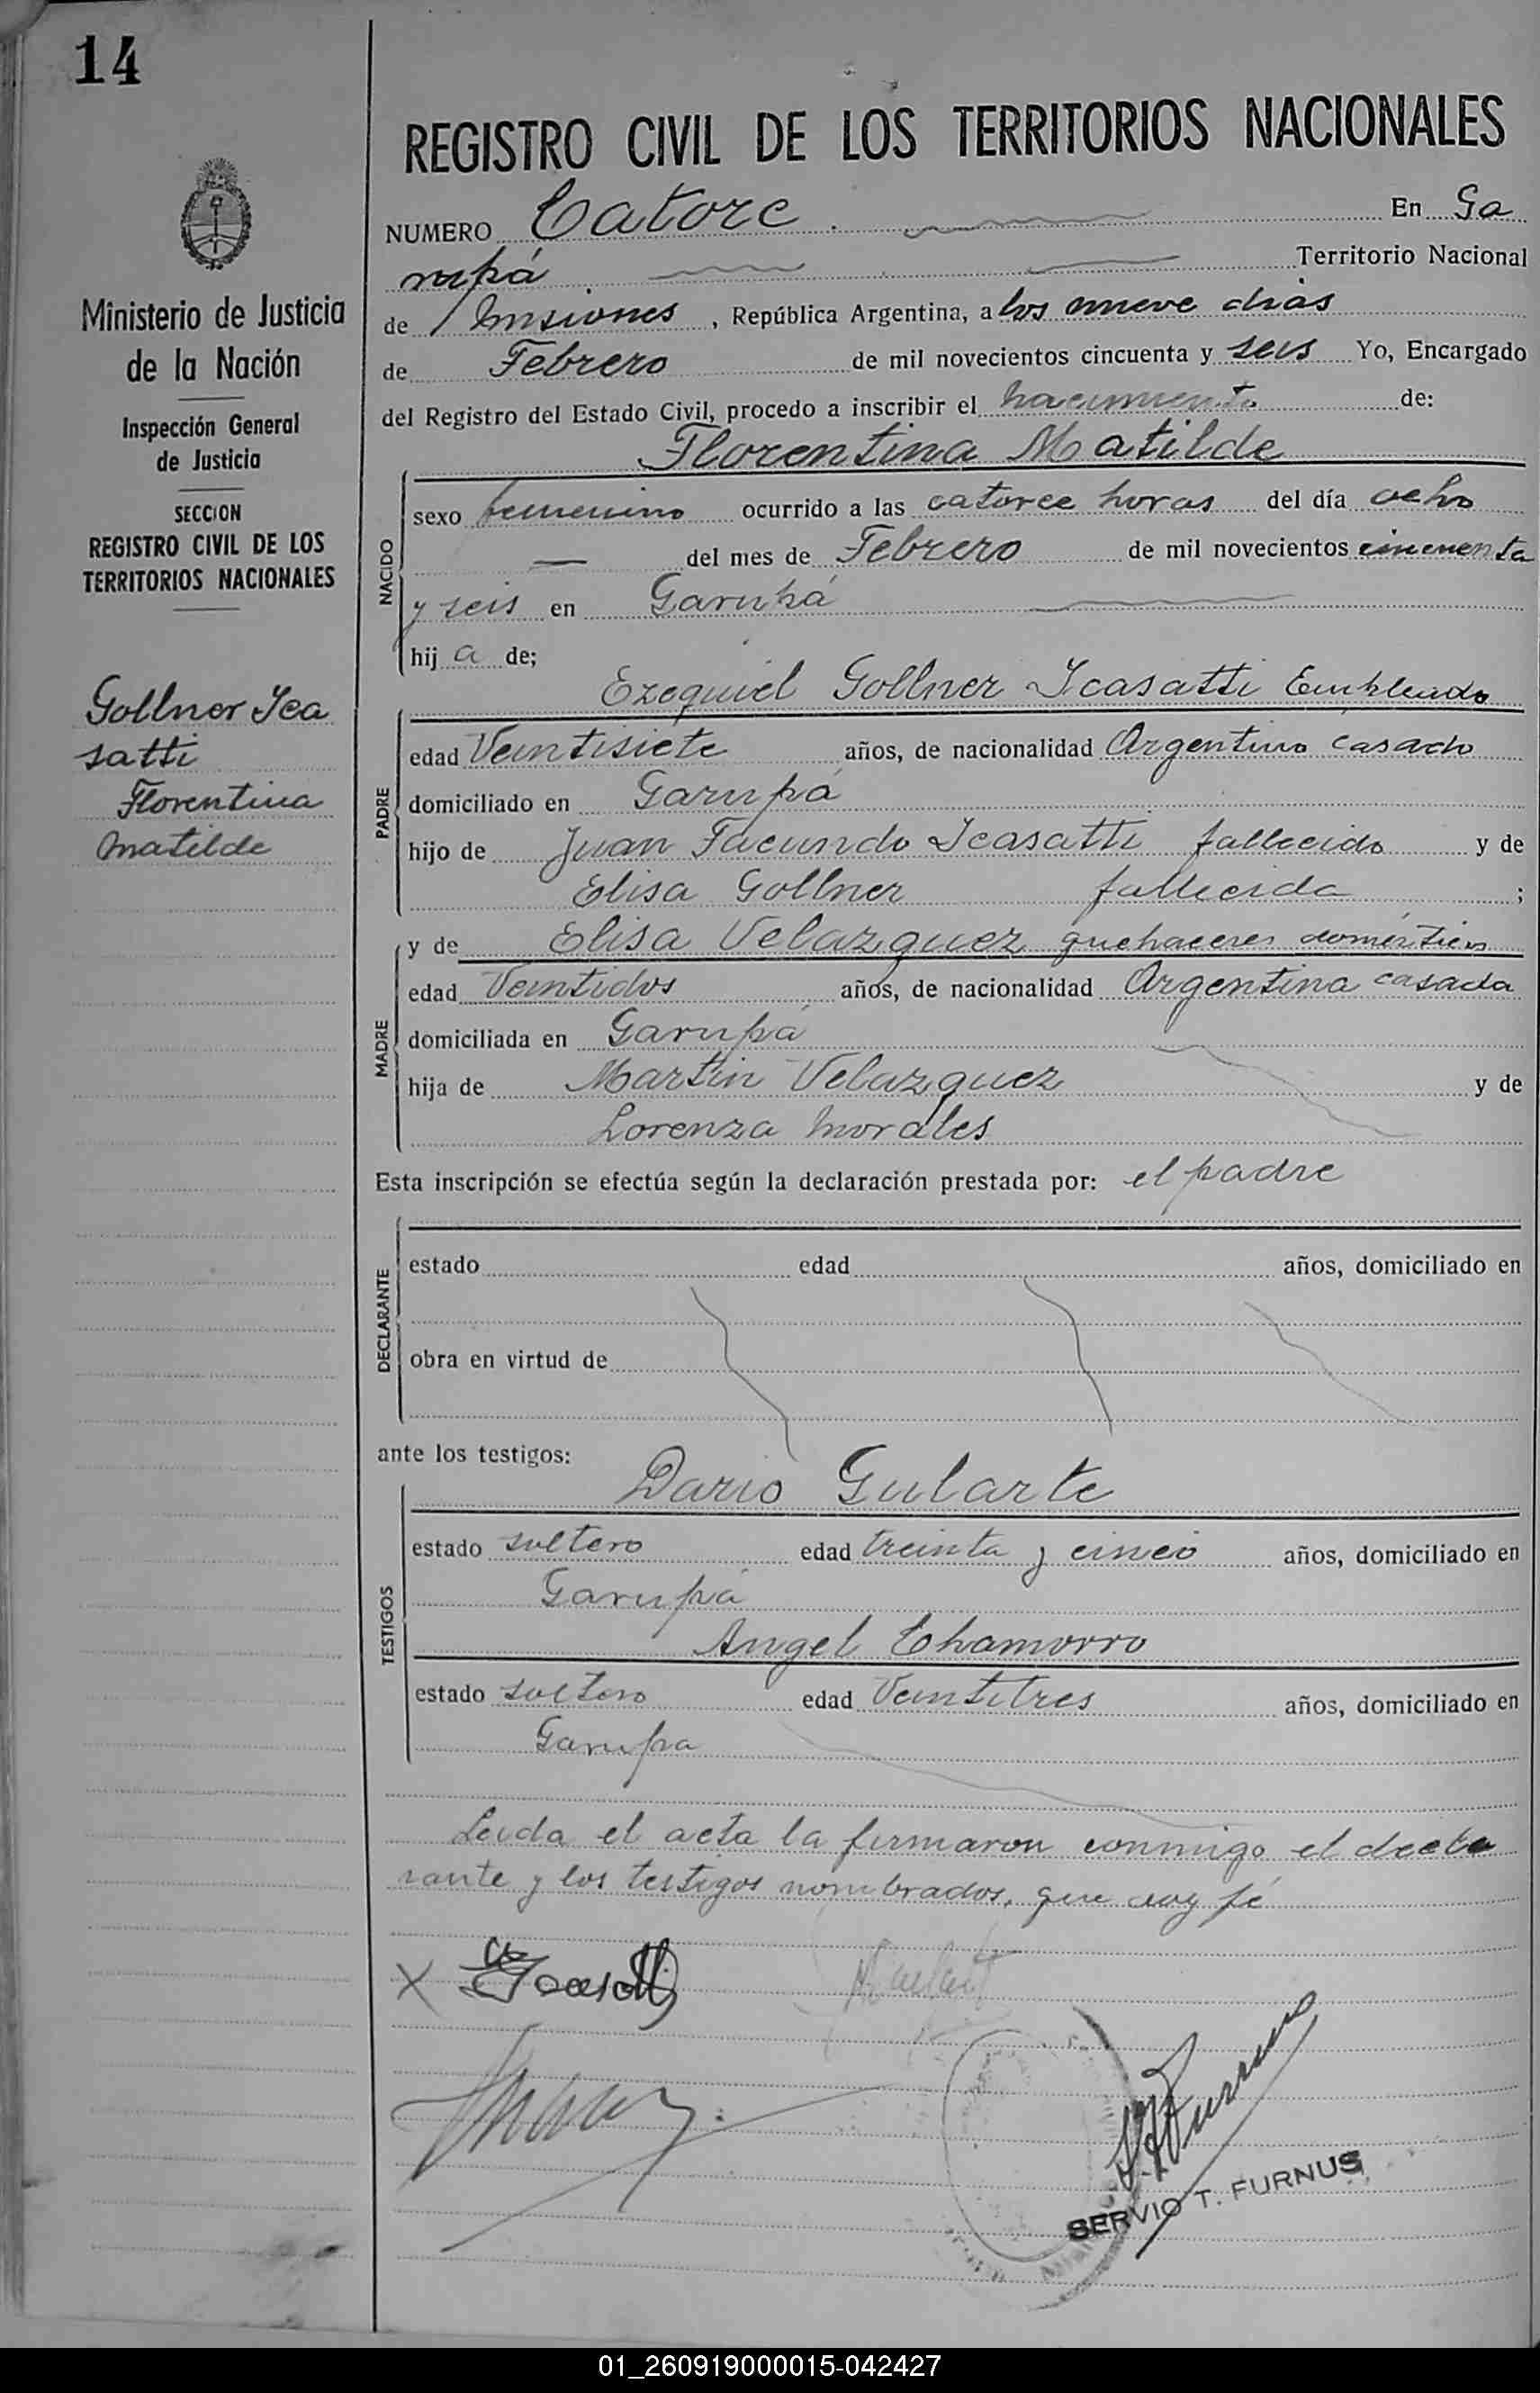 14
REGISTRO CIVIL DE LOS TERRITORIOS NACIONALES
NUMERO Catorc . En Ga
rupá Territorio Nacional
de Misiones , República Argentina, a los nueve dias
de Febrero de mil novecientos cincuenta y seis Yo, Encargado
del Registro del Estado Civil, procedo a inscribir el nacimiento de:
Florentina Matilde
Ministerio de Justicia
de la Nación
Inspección General
de Justicia
SECCION
REGISTRO CIVIL DE LOS
TERRITORIOS NACIONALES
Gollner Ica
satti
Florentina
Matilde
NACIDO
sexo femenino ocurrido a las catorce horas del día ocho
— del mes de Febrero de mil novecientos cincuenta
y seis en Garupá
hij a de;
Ezequiel Gollner Icasatti Empleado
PADRE
edad Veintisiete años, de nacionalidad Argentino casado
domiciliado en Garupá
hijo de Juan Facundo Icasatti fallecido y de
Elisa Gollner fallecida ;
MADRE
y de Elisa Velazquez quehaceres domésticos
edad Veintidos años, de nacionalidad Argentina casada
domiciliada en Garupá
hija de Martin Velazquez y de
Lorenza Morales
Esta inscripción se efectúa según la declaración prestada por: el padre
DECLARANTE
estado edad años, domiciliado en
obra en virtud de
ante los testigos:
Dario Gularte
TESTIGOS
estado soltero edad treinta y cinco años, domiciliado en
Garupá
Angel Chamorro
estado soltero edad Veintitres años, domiciliado en
Garupa
Leida el acta la firmaron conmigo el decla
rante y los testigos nombrados, que doy fé
X Icasatti
Furnus
SERVIO T. FURNUS
01_260919000015-042427